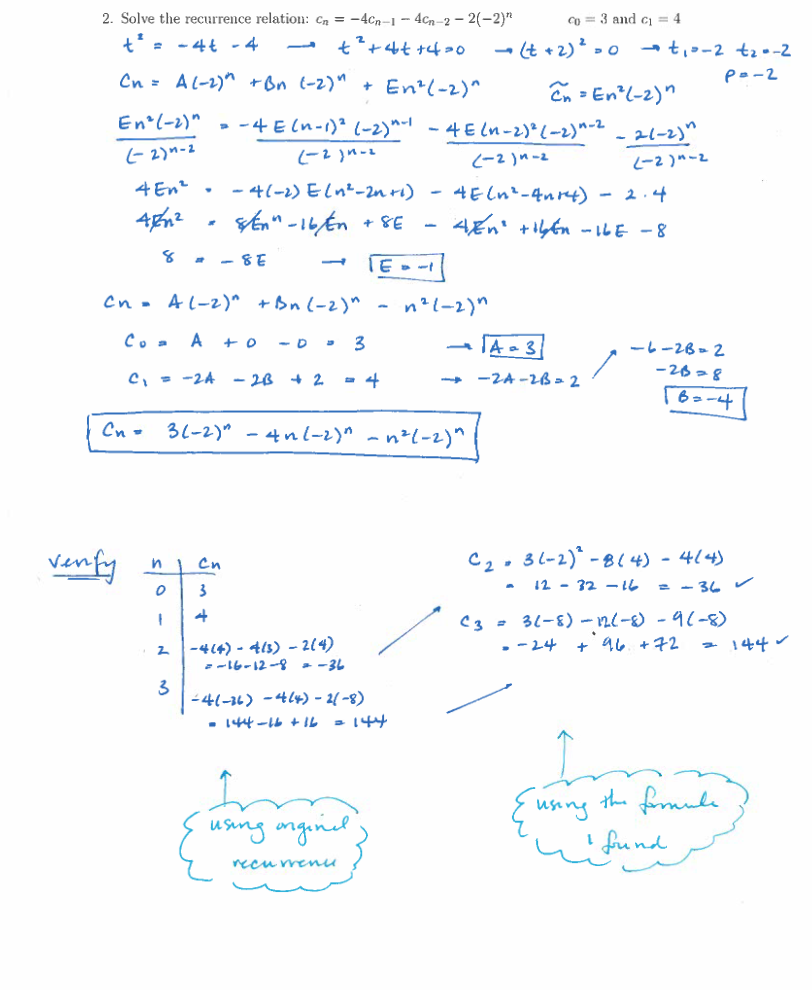 2. Solve the recurrence relation: cₙ = −4cₙ₋₁ − 4cₙ₋₂ − 2(−2)ⁿ    c₀ = 3 and c₁ = 4
t² = -4t -4 → t² + 4t + 4 = 0 → (t+2)² = 0 → t₁ = -2 t₂ = -2
Cn = A(-2)ⁿ + Bn (-2)ⁿ + En²(-2)ⁿ    C̃n = En²(-2)ⁿ    p = -2
En²(-2)ⁿ/(-2)ⁿ⁻² = -4E(n-1)²(-2)ⁿ⁻¹/(-2)ⁿ⁻² - 4E(n-2)²(-2)ⁿ⁻²/(-2)ⁿ⁻² - 2(-2)ⁿ/(-2)ⁿ⁻²
4En² = -4(-2)E(n²-2n+1) - 4E(n²-4n+4) - 2·4
4En² = 8Enⁿ - 16En + 8E - 4En² + 16En - 16E - 8
8 = -8E → E = -1
Cn = A(-2)ⁿ + Bn(-2)ⁿ - n²(-2)ⁿ
C₀ = A + 0 - 0 = 3 → A = 3
C₁ = -2A - 2B + 2 = 4 → -2A - 2B = 2
-6 - 2B = 2
-2B = 8
B = -4
Cn = 3(-2)ⁿ - 4n(-2)ⁿ - n²(-2)ⁿ
verify
n Cn
0 3
1 4
2 -4(4) - 4(3) - 2(4)
= -16 - 12 - 8 = -36
3 -4(-36) - 4(4) - 2(-8)
= 144 - 16 + 16 = 144
C₂ = 3(-2)² - 8(4) - 4(4)
= 12 - 32 - 16 = -36 ✓
C₃ = 3(-8) - 12(-8) - 9(-8)
= -24 + 96 + 72 = 144 ✓
using orginal
recurrence
using the formula
I found